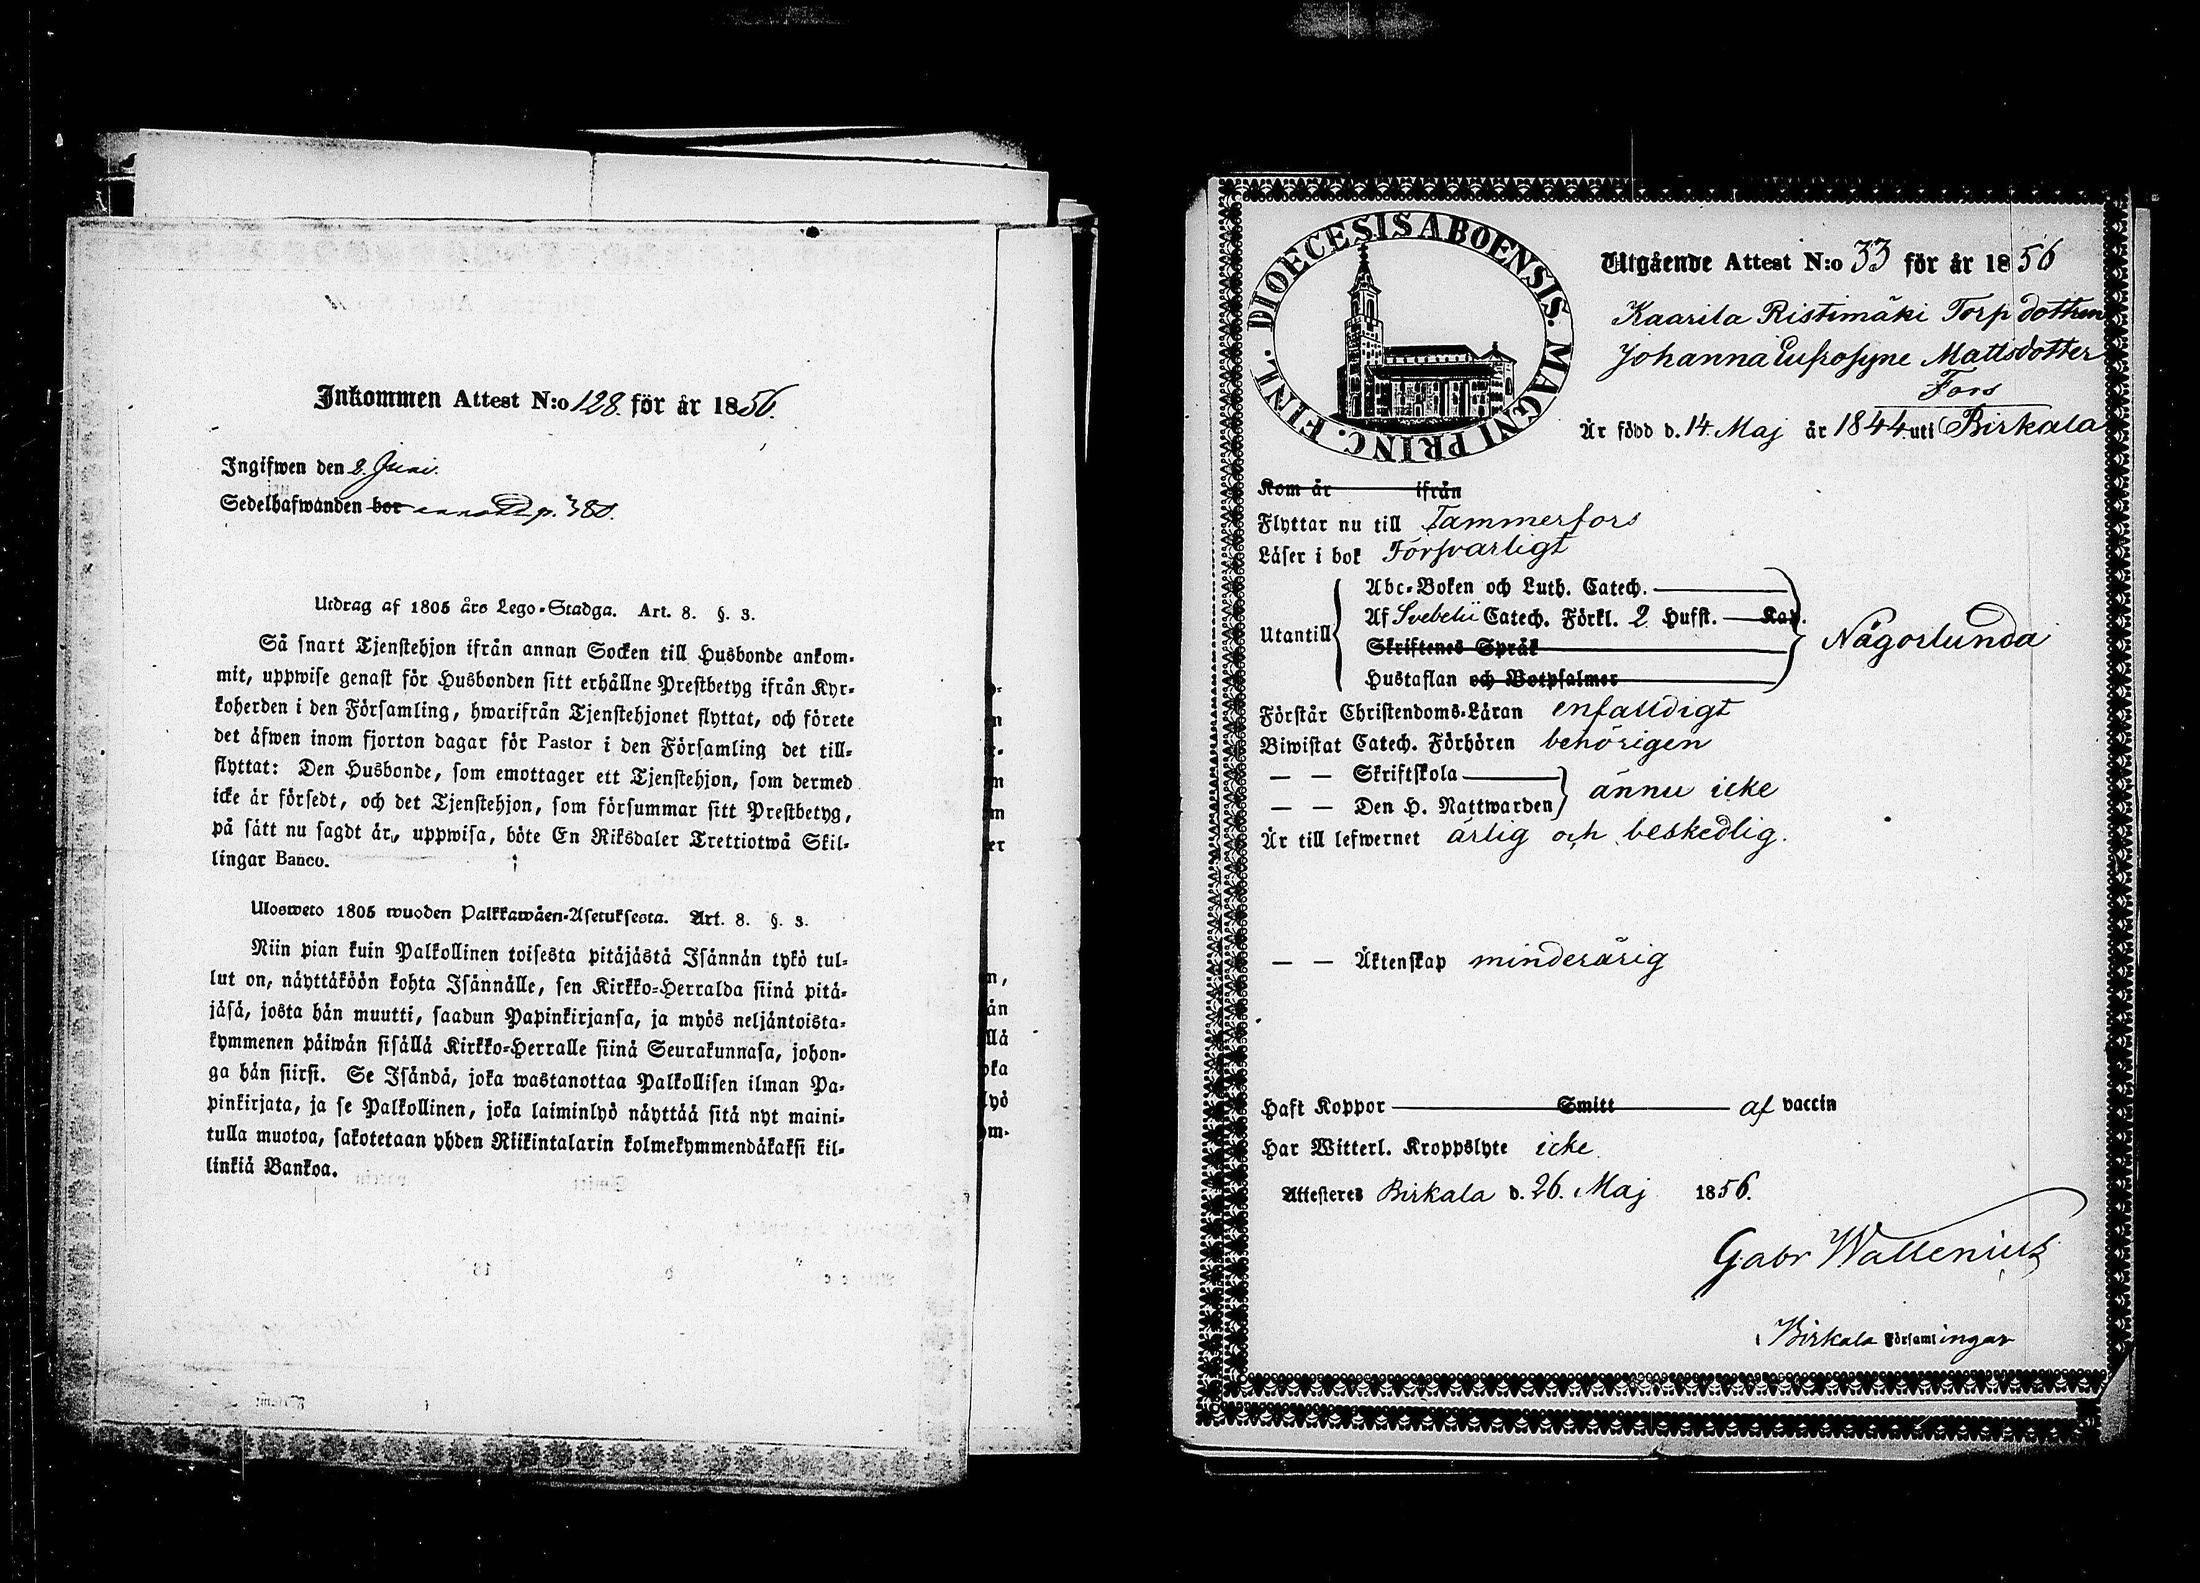 Inkommen Attest N:o 128. för år 1856.
Ingifwen den 2. Juni.
Sedelhafwanden bor p. 380.
Utdrag af 1805 års Lego-Stadga. Art. 8. §. 3.
Så snart Tjenstehjon ifrån annan Socken till Husbonde ankom-
mit, uppwise genast för Husbonden sitt erhållne Prestbetyg ifrån Kyr-
koherden i den Församling, hwarifrån Tjenstehjonet flyttat, och förete
det äfwen inom fjorton dagar för Pastor i den Församling det till-
flyttat: Den Husbonde, som emottager ett Tjenstehjon, som dermed
icke är försedt, och det Tjenstehjon, som försummar sitt Prestbetyg,
på sätt nu sagdt är, uppwisa, böte En Riksdaler Trettiotwå Skil-
lingar Banco.
Ulosweto 1805 wuoden Palkkawäen-Asetuksesta. Art. 8. §. 3.
Niin pian kuin Palkollinen toisesta pitäjästä Isännän tykö tul-
lut on, näyttäköön kohta Isännälle, sen Kirkko-Herralda siinä pitä-
jäsä, josta hän muutti, saadun Papinkirjansa, ja myös neljäntoista-
kymmenen päiwän sisällä Kirkko-Herralle siinä Seurakunnasa, johon-
ga hän siirsi. Se Isändä, joka wastanottaa Palkollisen ilman Pa-
pinkirjata, ja se Palkollinen, joka laiminlyö näyttää sitä nyt maini-
tulla muotoa, sakotetaan yhden Riikintalarin kolmekymmendäkaksi kil-
linkiä Bankoa.
DIOECESIS ABOENSIS. MAGNI PRINC. FINL.
Utgående Attest N:o 33 för år 1856
Kaarila Ristimäki Torp dottren
Johanna Eufrosyne Mattsdotter
Fors
Är född d. 14. Maj år 1844 uti Birkala
Kom år ifrån
Flyttar nu till Tammerfors
Läser i bok Försvarligt
Utantill
Abc-Boken och Luth. Catech.
Af Svebelii Catech. Förkl. 2 Hufst. Kap.
Skriftenes Språk
Hustaflan och Botpsalmer
Någorlunda
Förstår Christendoms-Läran enfalldigt
Biwistat Catech. Förhören behörigen
— — Skriftskola
— — Den H. Nattwarden
ännu icke
Är till lefwernet ärlig och beskedlig.
— — Äktenskap minderårig
Haft Koppor Smitt af vaccin
Har Witterl. Kroppslyte icke
Attesteres Birkala d. 26. Maj 1856.
Gabr Wallenius
i Birkala Församlingar